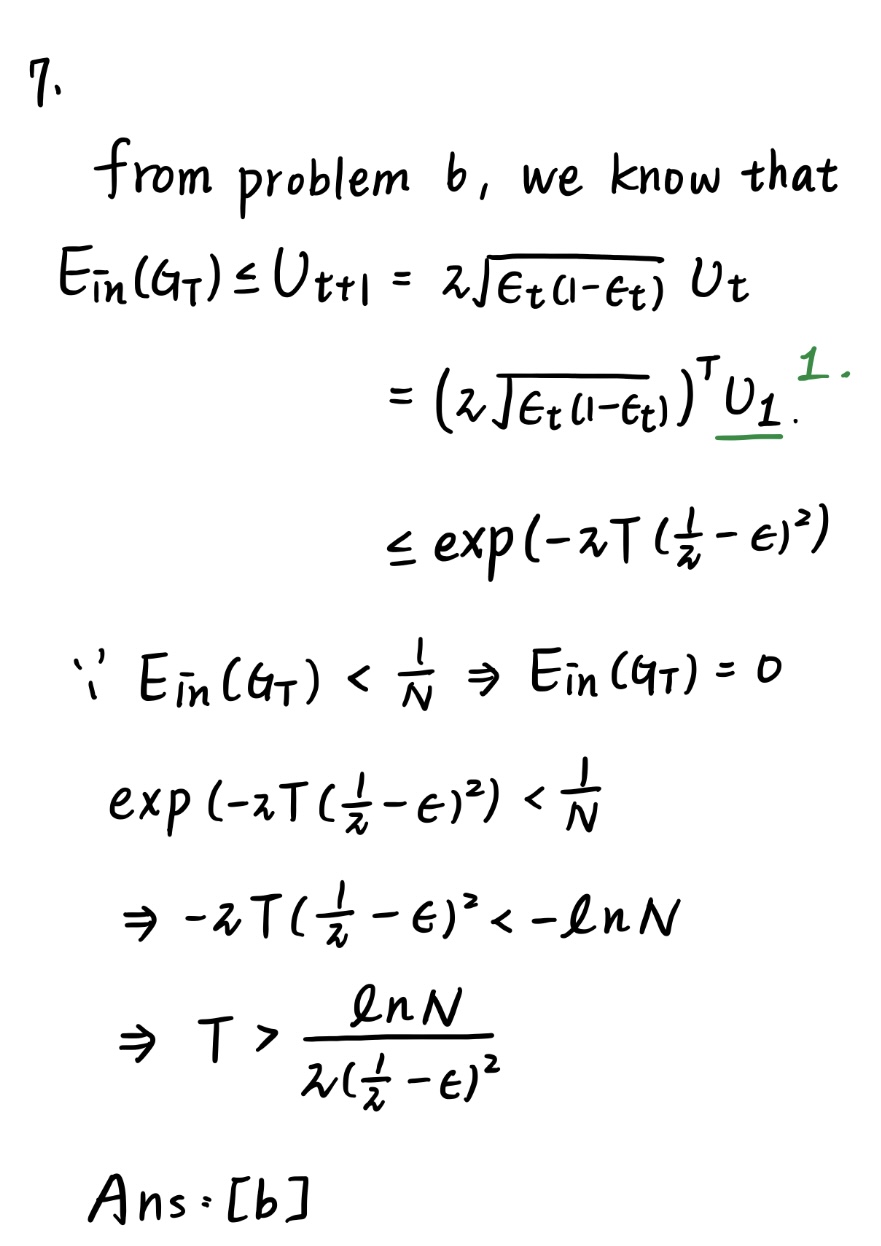 7.
from problem 6, we know that
Ein(G_T) ≤ U_{t+1} = 2√(ϵ_t(1-ϵ_t)) U_t
= (2√(ϵ_t(1-ϵ_t)))^T U_1. 1.
≤ exp(-2T(1/2 - ϵ)²)
∵ Ein(G_T) < 1/N ⇒ Ein(G_T) = 0
exp(-2T(1/2 - ϵ)²) < 1/N
⇒ -2T(1/2 - ϵ)² < -ln N
⇒ T > ln N / 2(1/2 - ϵ)²
Ans: [b]